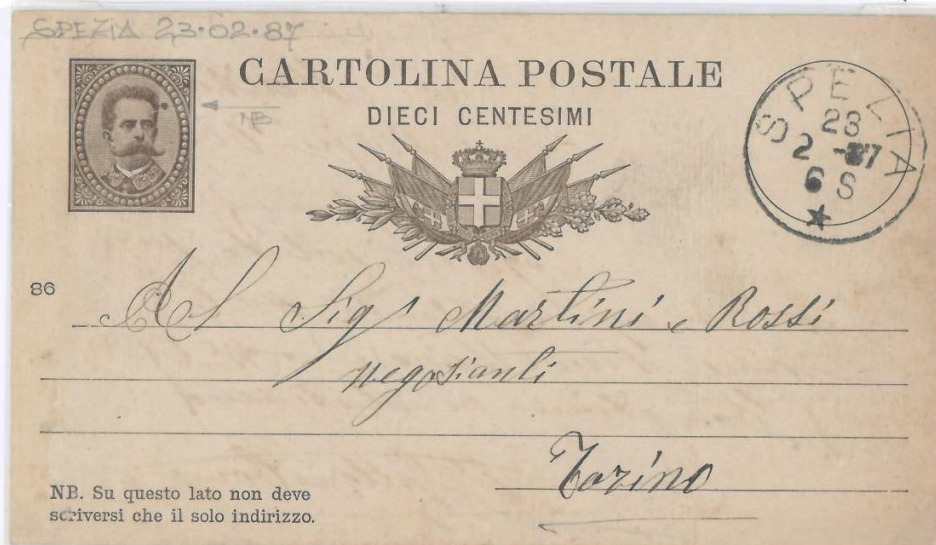 SPEZIA 23·02·87
CARTOLINA POSTALE
DIECI CENTESIMI
NB
SPEZIA
23
2 -87
6 S
86
Al Sigr Martini e Rossi
negozianti
Torino
NB. Su questo lato non deve
scriversi che il solo indirizzo.